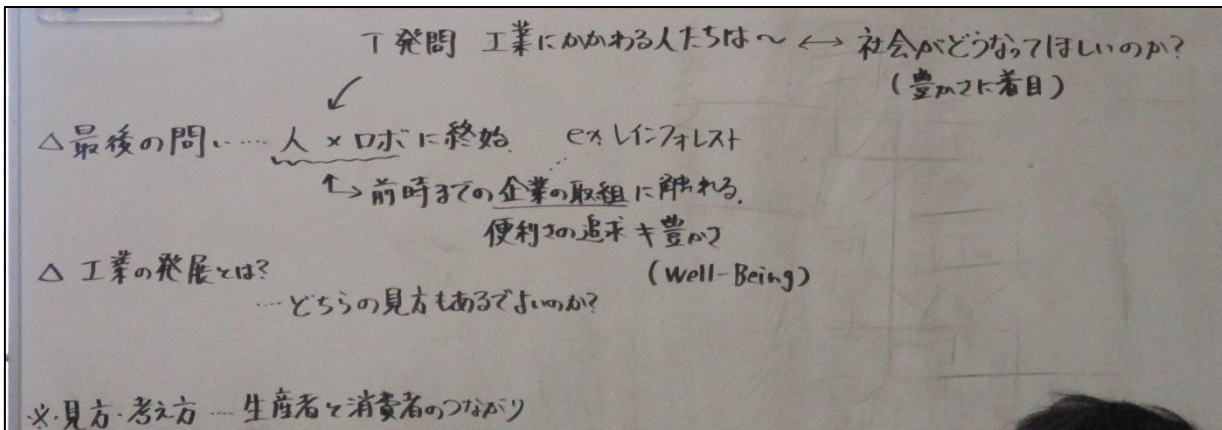 T 発問 工業にかかわる人たちは～ ↔ 社会がどうなってほしいのか?
(豊かさに着目)
△ 最後の問い…… 人 × ロボに終始. ex レインフォレスト
↳ 前時までの企業の取組に触れる.
便利さの追求 ≠ 豊かさ
(Well-Being)
△ 工業の発展とは?
…どちらの見方もあるでよいのか?
※・見方・考え方 … 生産者と消費者のつながり